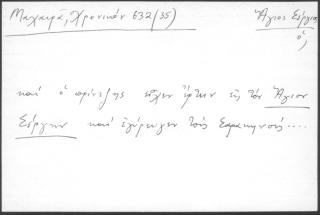 Μαχαιρᾶ, Χρονικόν 632 (35)
Ἅγιος Σέργιος
ὁ,
καὶ ὁ πρίντζης εἶχεν ἔρτειν εἰς τὸν Ἅγιον
Σέργην καὶ ἐγύρευγεν τοὺς Σαρακηνούς....